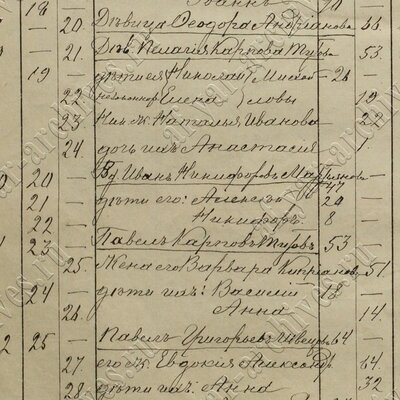 18 Іоаннъ
20. Дѣвица Ѳеодора Андріанова 66
21. Дѣв. Пелагія Карпова Турова 53.
19 дѣти ея Николай Михай- 26 —
22. Елена ловы 19
23. Ник. ж. Наталья Иванова 22
24. дочь ихъ Анастасія 1
20 Вд. Иванъ Никифоровъ 47 —
21 — дѣти его: Алексѣй 20 —
22 — Никифоръ 8 —
23 — Павелъ Карповъ Туровъ 53 —
25. Жена его Варвара Кипріанов. 51
24 — дѣти ихъ: Василій 12 —
26. Анна 14.
25 — Павелъ Григорьевъ Швецовъ 64 —
27. его ж. Евдокія Александр. 64.
28. дѣти ихъ: Анна 32